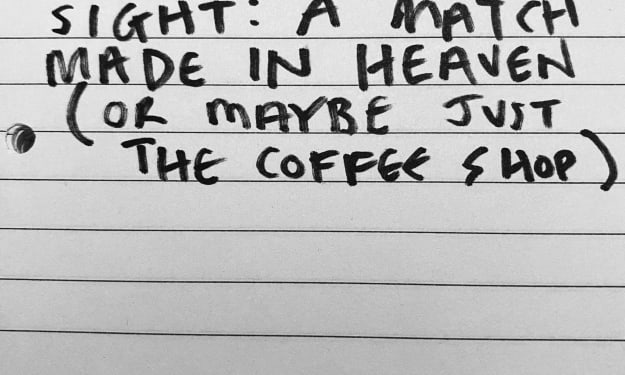 SIGHT: A MATCH
MADE IN HEAVEN
(OR MAYBE JUST
THE COFFEE SHOP)